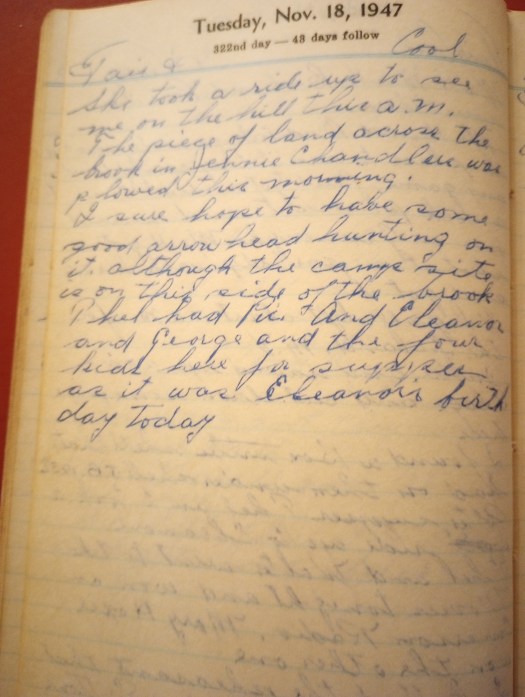 Tuesday, Nov. 18, 1947
322nd day — 43 days follow
Fair & Cool
She took a ride up to see
me on the hill this a.m.
The piece of land across the
brook in Jennie Chandlers was
plowed this morning.
I sure hope to have some
good arrowhead hunting on
it. although the camp site
is on this side of the brook
Phel had Pic. And Eleanor
and George and the four
kids here for supper
as it was Eleanors birth
day today